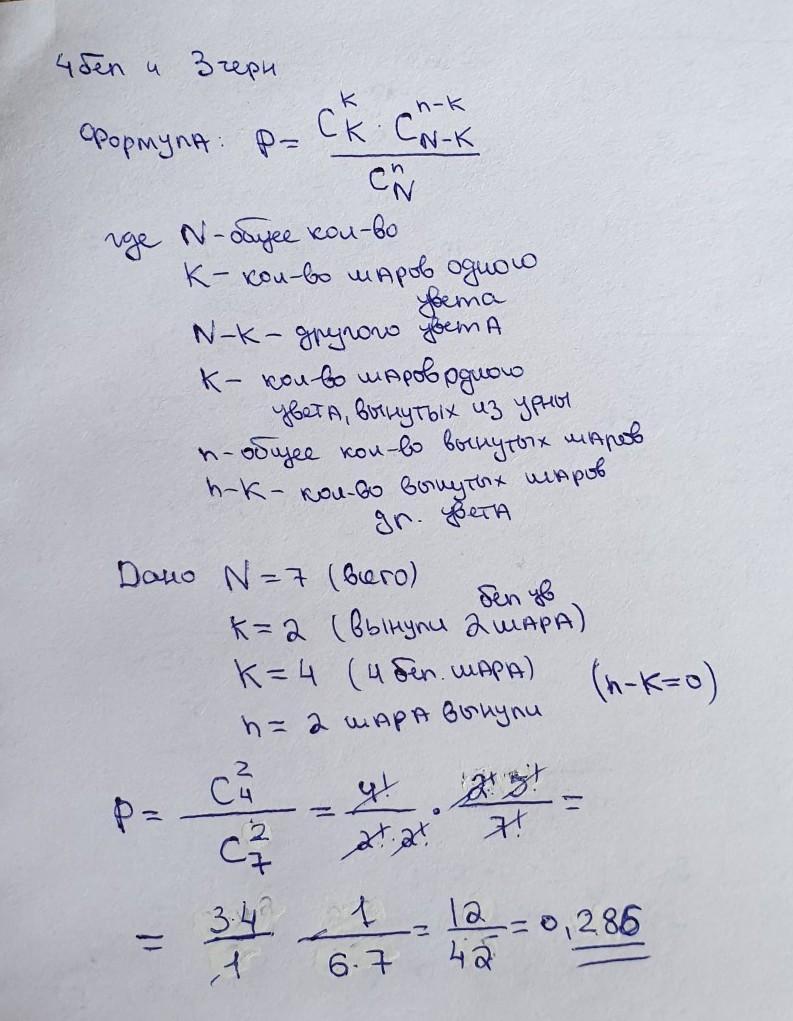 4 бел и 3 черн
Формула: P = C_K^k · C_{N-K}^{n-k} / C_N^n
где N - общее кол-во
K - кол-во шаров одного
цвета
N-K - другого цвета
K - кол-во шаров одного
цвета, вынутых из урны
n - общее кол-во вынутых шаров
n-K - кол-во вынутых шаров
др. цвета
Дано N = 7 (всего)
бел цв
k = 2 (вынули 2 шара)
K = 4 (4 бел. шара) (n-K=0)
n = 2 шара вынули
P = C_4^2 / C_7^2 = 4! / 2! 2! · 2! 5! / 7! =
= 3·4 / 1 · 1 / 6·7 = 12 / 42 = 0,286